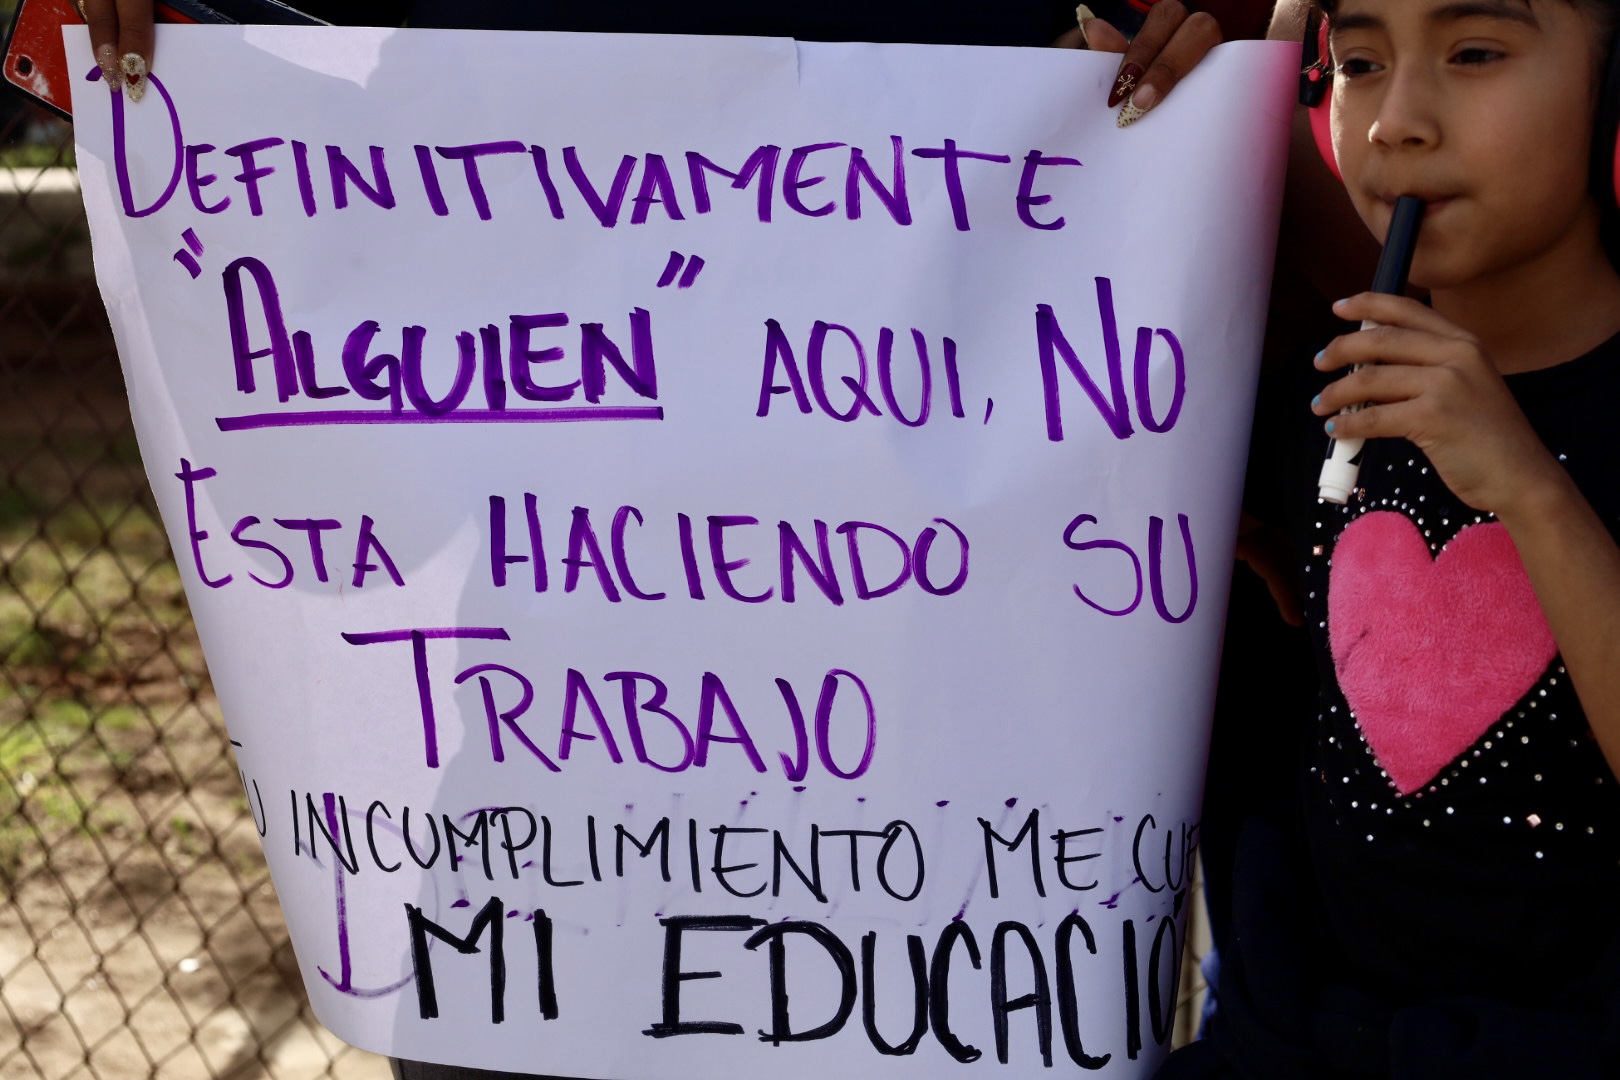 DEFINITIVAMENTE
"ALGUIEN" AQUI, NO
ESTA HACIENDO SU
TRABAJO
TU INCUMPLIMIENTO ME CUE
MI EDUCACIÓ